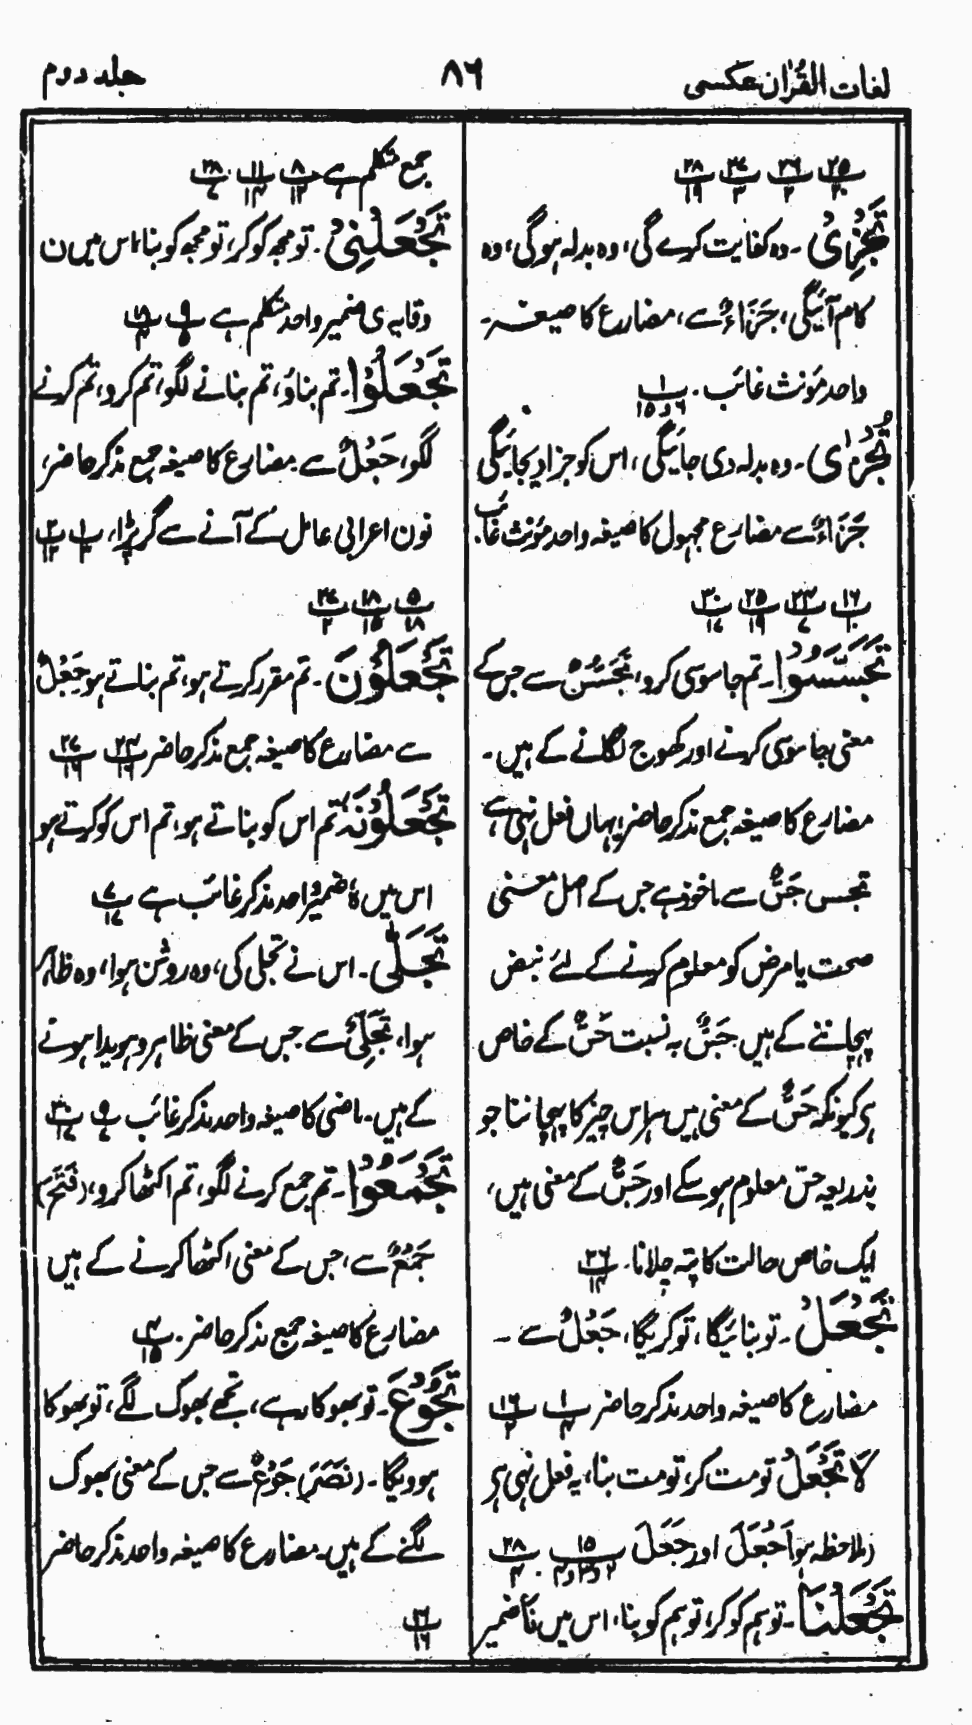 لغات القرآن عکسی ۸۶ جلد دوم
۲۵/۲۰ ۲۶/۲ ۲۷/۳ ۲۸/۱۹
تَجْزِیْ ۔ وہ کفایت کرے گی، وہ بدلہ ہوگی، وہ
کام آئیگی، جَزَاءٌ سے، مضارع کا صیغہ۔
واحد مؤنث غائب ۔ ۱/۶و۱۵
تُجْزٰی ۔ وہ بدلہ دی جائیگی، اس کو جزا دیجائیگی
جَزَاءٌ سے مضارع مجہول کا صیغہ واحد مؤنث غائب۔
۱۶/۱۰ ۲۴/۷ ۲۵/۱۹ ۳۰/۱۷
تَجَسَّسُوْا ۔ تم جاسوسی کرو، تَجَسُّسٌ سے جس کے
معنی جاسوسی کرنے اور کھوج لگانے کے ہیں ۔
مضارع کا صیغہ جمع مذکر حاضر، یہاں فعل نہی ہے
تجسس جَسٌّ سے ماخوذ ہے جس کے اصل معنی
صحت یا مرض کو معلوم کرنے کے لئے نبض
پہچاننے کے ہیں جَسٌّ بہ نسبت حَسٌّ کے خاص
ہی کیونکہ حَسٌّ کے معنی ہیں ہر اس چیز کا پہچاننا جو
بذریعہ حس معلوم ہوسکے اور جَسٌّ کے معنی ہیں،
ایک خاص حالت کا پتہ چلانا ۔ ۲۶/۱۴
تَجْعَلُ ۔ تو بنائیگا، تو کریگا، جَعْلٌ سے ۔
مضارع کا صیغہ واحد مذکر حاضر ۱/۴ ۱۶/۲
لَا تَجْعَلْ تو مت کر، تو مت بنا، یہ فعل نہی ہی
(ملاحظہ ہو اَجْعَلَ اور جَعَلَ ۱۵/۲و۳و۴ ۲۸/۴
تَجْعَلْنَا ۔ تو ہم کو کر، تو ہم کو بنا، اس میں نَا ضمیر
جمع متکلم ہے ۸/۱۲ ۱۱/۱۴ ۲۸/۷
تَجْعَلْنِیْ ۔ تو مجھ کو کر، تو مجھ کو بنا، اس میں ن
وقایہ ی ضمیر واحد متکلم ہے ۹/۵ ۱۸/۴
تَجْعَلُوْا ۔ تم بناؤ، تم بنانے لگو، تم کرو، تم کرنے
لگو، جَعْلٌ سے مضارع کا صیغہ جمع مذکر حاضر،
نون اعرابی عامل کے آنے سے گر پڑا، ۱/۳ ۲/۱۲
۵/۱۸ ۱۸/۱۵ ۲۷/۲
تَجْعَلُوْنَ ۔ تم مقرر کرتے ہو، تم بناتے ہو جَعْلٌ
سے مضارع کا صیغہ جمع مذکر حاضر ۲۴/۱۶ ۲۷/۱۶
تَجْعَلُوْنَہٗ تم اس کو بناتے ہو، تم اس کو کرتے ہو
اس میں ہٗ ضمیر واحد مذکر غائب ہے ۷/۱۷
تَجَلّٰی ۔ اس نے تجلی کی، وہ روشن ہوا، وہ ظاہر
ہوا، تَجَلِّیٌ سے جس کے معنی ظاہر و ہویدا ہونے
کے ہیں ۔ ماضی کا صیغہ واحد مذکر غائب ۹/۷ ۳۰/۱۷
تَجْمَعُوْا ۔ تم جمع کرنے لگو، تم اکٹھا کرو، (فَتَحَ)
جَمْعٌ سے، جس کے معنی اکٹھا کرنے کے ہیں
مضارع کا صیغہ جمع مذکر حاضر ۔ ۴/۱۵
تَجُوْعَ ۔ تو بھوکا رہے، تجھے بھوک لگے، تو بھوکا
ہوویگا ۔ (نَصَرَ) جَوْعٌ سے جس کے معنی بھوک
لگنے کے ہیں ۔ مضارع کا صیغہ واحد مذکر حاضر
۱۶/۱۶